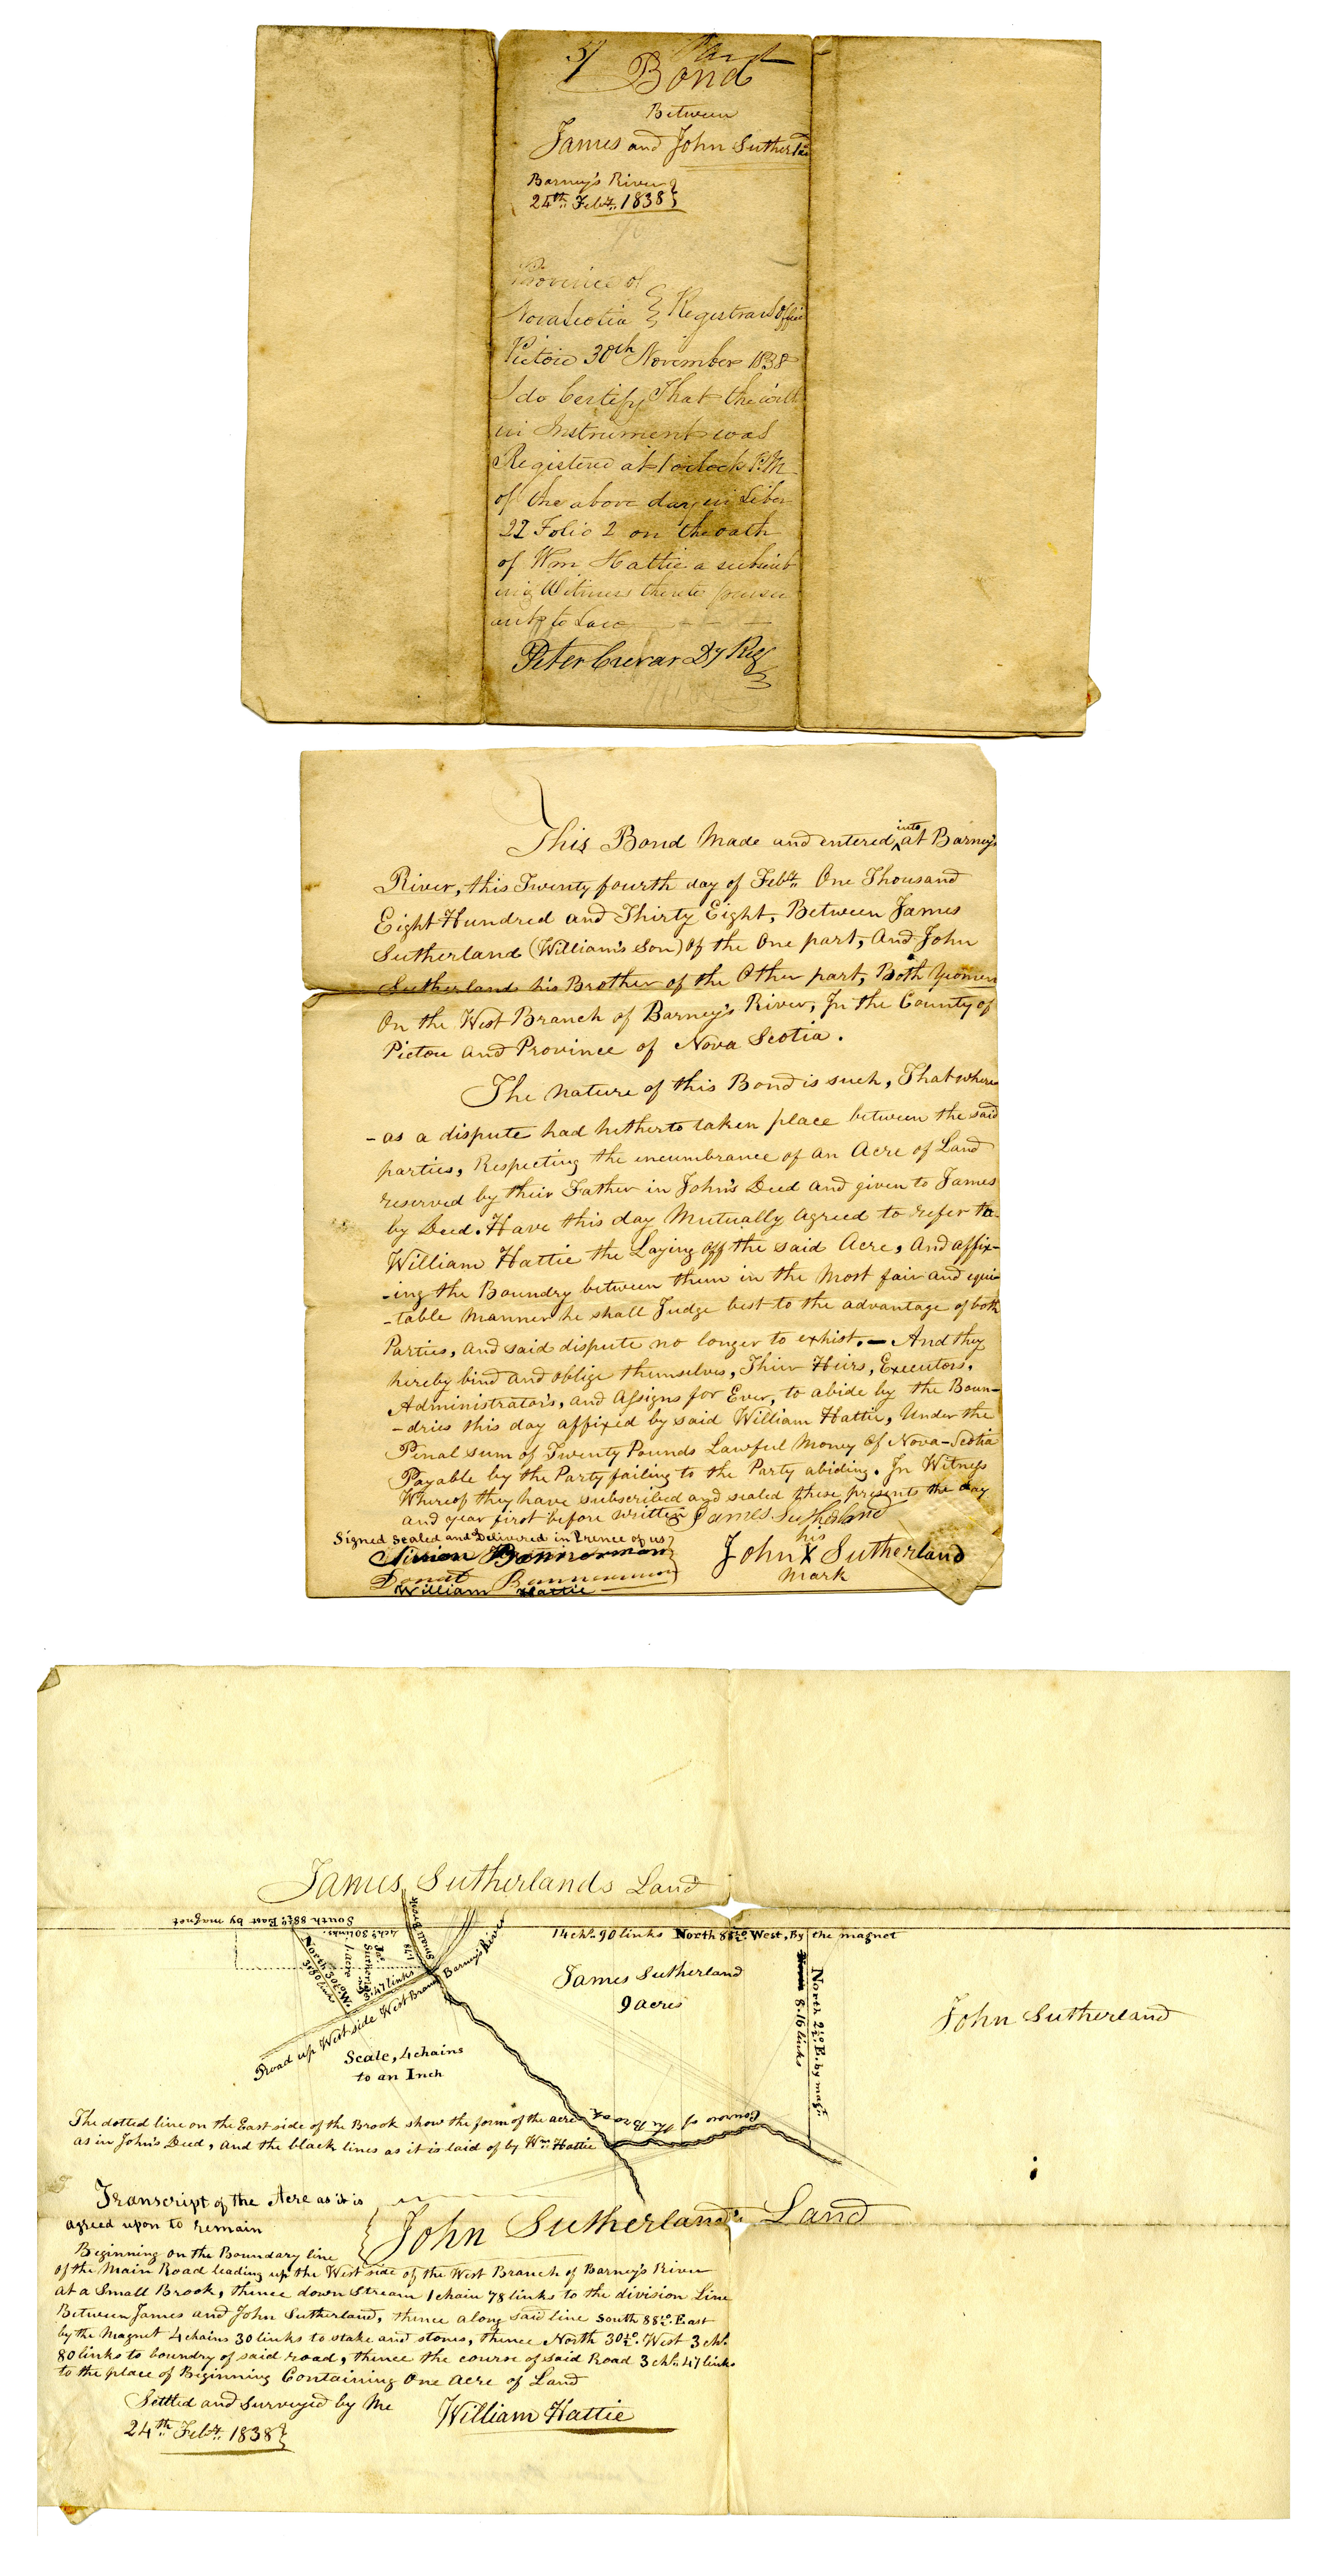 Bond
Between
James and John Sutherland
Barney's River
24th Feby. 1838
Province of
Nova Scotia } Registrars Office
Pictou 30th November 1838
I do Certify That the with
in Instrument was
Registered at 1 oclock P.M
of the above day in Liber
22 Folio 2 on the oath
of Wm Hattie a subscrib
ing Witness thereto pursu
ant to Law
Peter Crerar Dy Reg
This Bond Made and entered into at Barney's
River, this Twenty fourth day of Feby. One Thousand
Eight Hundred and Thirty Eight, Between James
Sutherland (William's Son) Of the One part, And John
Sutherland his Brother of the Other part, Both Yeomen
On the West Branch of Barney's River, In the County of
Pictou and Province of Nova Scotia.
The nature of this Bond is such, That where
-as a dispute had hetherto taken place between the said
parties, Respecting the incumbrance of an Acre of Land
reserved by their Father in John's Deed and given to James
by Deed. Have this day Mutually Agreed to refer to
William Hattie the Laying off the said Acre, And affix-
-ing the Boundry between them in the Most fair and equi-
-table Manner he shall Judge best to the advantage of both
Parties, and said dispute no longer to exhist. — And they
hereby bind and oblige themselves, Their Heirs, Executors,
Administrators, and Assigns for Ever, to abide by the Boun-
-dries this day affixed by said William Hattie, Under the
Penal sum of Twenty Pounds Lawful Money of Nova-Scotia
Payable by the Party failing to the Party abiding. In Witness
Whereof they have subscribed and sealed these presents the day
and year first before written James Sutherland
Signed Sealed and Delivered in Prence of us
his
John X Sutherland
mark
Simon Bannerman
Donald Bannerman
William Hattie
James Sutherlands Land
South 88½° East by magnet
4chs 30 links.
14 chs. 90 links North 88½° West, By the magnet
Small Brook
1.78
North 30½° W.
3.80 links
Jas Sutherlds
1 acre
3.47 links
Road up West side West Branch Barney's River
James Sutherland
9 acres
North 2½° E. by mag.
8.16 links
John Sutherland
Scale, 4 chains
to an Inch
Course of the Brook
The dotted line on the East side of the Brook show the form of the acre
as in John's Deed, and the black lines as it is laid of by Wm. Hattie
Transcript of the Acre as it is
agreed upon to remain
John Sutherland's Land
Beginning on the Boundary line
of the Main Road leading up the West side of the West Branch of Barney's River
at a Small Brook, thence down stream 1 chain 78 links to the division Line
Between James and John Sutherland, thence along said line South 88½° East
by the Magnet 4 chains 30 links to stake and stones, thence North 30½° West 3 chs.
80 links to boundry of said road, thence the course of said Road 3 chs. 47 links
to the place of Beginning Containing One Acre of Land
Settled and surveyed by Me William Hattie
24th Feby. 1838